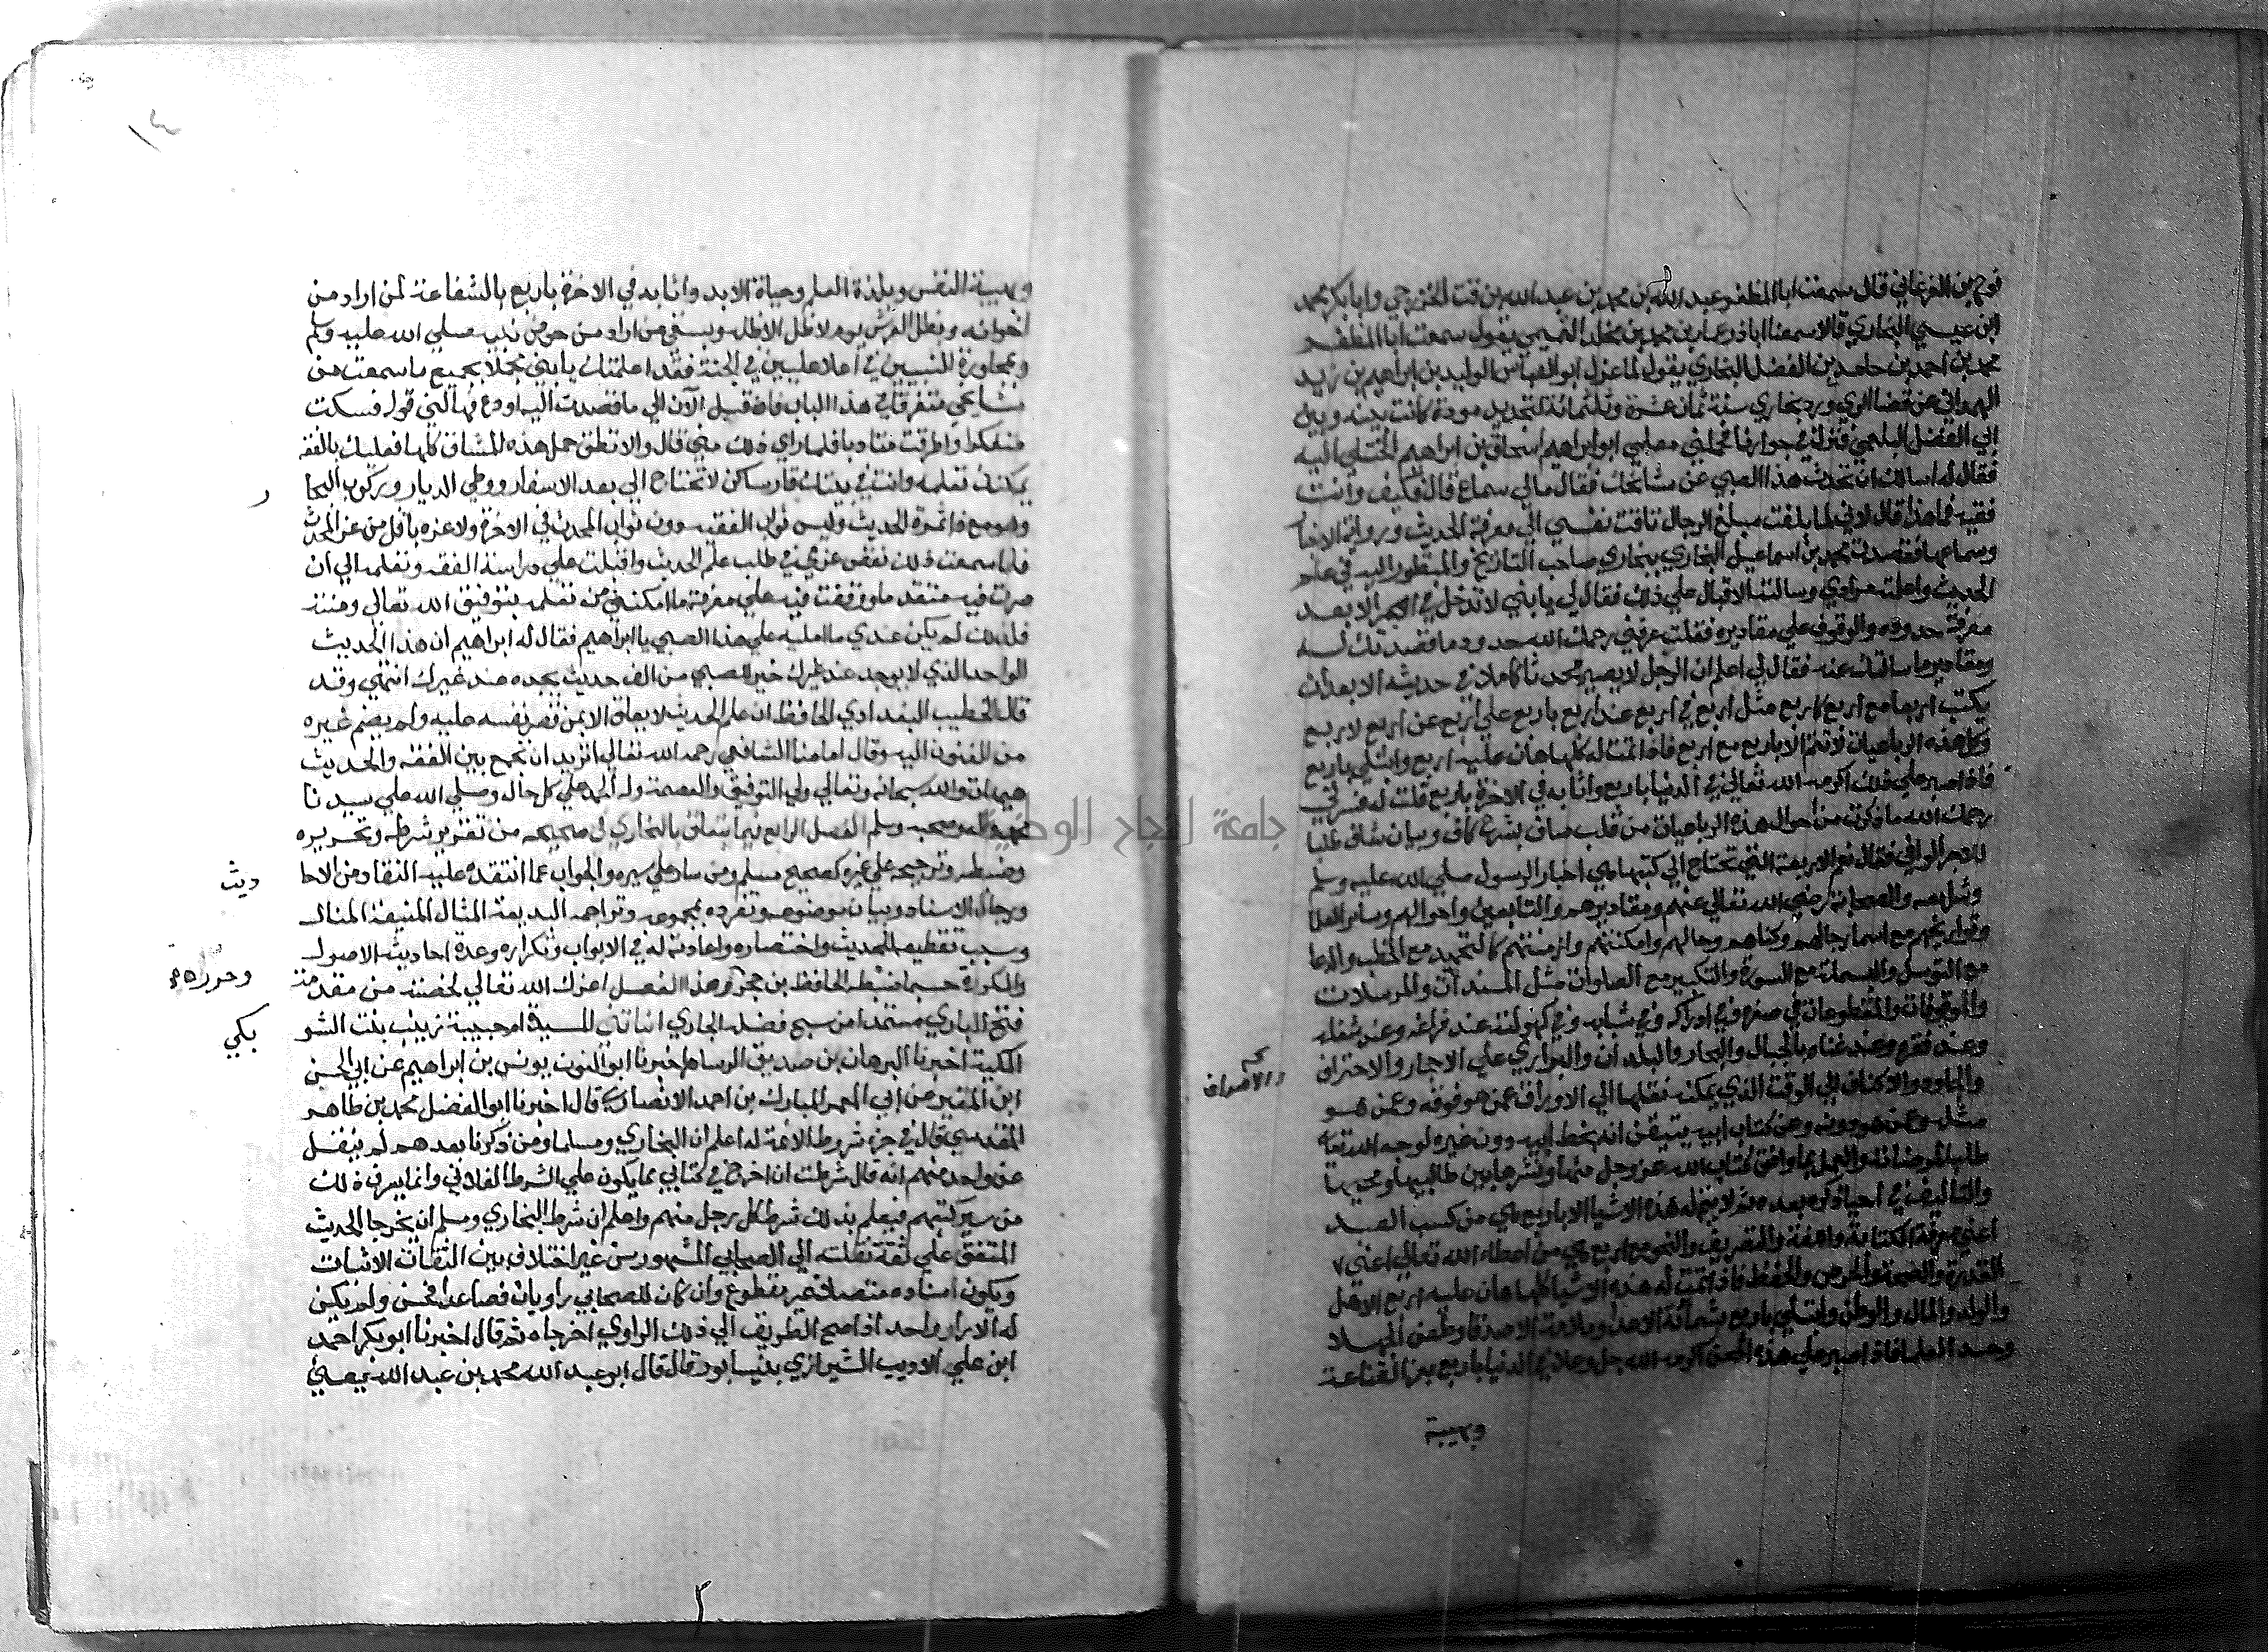 نوح بن الفرغاني قال سمعت ابا المظفر عبد الله بن محمد بن عبد الله بن قت الخزرجي وابا بكر محمد
ابن عيسي البخاري قالا سمعنا ابا ذر عمار بن محمد بن مخلد التميمي يقول سمعت ابا المظفر
محمد بن احمد بن حامد بن الفضل البخاري يقول لما عزل ابو العباس الوليد بن ابراهيم بن زيد
الهمداني عن قضا الري ورد بخاري سنة ثمان عشرة وثلثمائة لتجديد مودة كانت بينه وبين
ابي الفضل البلعمي فنزل في جوارنا فحملني معلمي ابو ابراهيم اسحاق بن ابراهيم الختلي اليه
فقال له اسالك ان تحدث هذا الصبي عن مشايخك فقال مالي سماع قال فكيف وانت
فقيه فما هذا قال لاني لما بلغت مبلغ الرجال تاقت نفسي الي معرفة الحديث ورواية الاخبار
وسماعها فقصدت محمد بن اسماعيل البخاري ببخاري صاحب التاريخ والمنظور اليه في علم
الحديث واعلمته مرادي وسالته الاقبال علي ذلك فقال لي يا بني لا تدخل في امر الا بعد
معرفة حدوده والوقوف علي مقاديره فقلت عرفني رحمك الله حدود ما قصدتك له
ومقادير ما سالتك عنه فقال لي اعلم ان الرجل لا يصير محدثا كاملا في حديثه الا بعد ان
يكتب اربعا مع اربع كاربع مثل اربع في اربع عند اربع باربع علي اربع عن اربع لاربع
وكل هذه الرباعيات لا تتم الا باربع مع اربع فاذا تمت له كلها هان عليه اربع وابتلي باربع
فاذا صبر علي ذلك اكرمه الله تعالي في الدنيا باربع واثابه في الاخرة باربع قلت له فسر لي
رحمك الله ما ذكرت من احوال هذه الرباعيات من قلب صاف بشرح كاف وبيان شاف طلبا
للاجر الوافي فقال نعم الاربعة التي تحتاج الي كتبها هي اخبار الرسول صلي الله عليه وسلم
وشرايعه والصحابة رضي الله تعالي عنهم ومقاديرهم والتابعين واحوالهم وساير العلما
وتواريخهم مع اسما رجالهم وكناهم وامكنتهم وازمنتهم كالتحميد مع الخطب والدعا
مع التوسل والبسملة مع السورة والتكبير مع الصلوات مثل المسندات والمرسلات
والموقوفات والمقطوعات في صغره وفي ادراكه وفي شبابه وفي كهولته عند فراغه وعند شغله
وعند فقره وعند غناه بالجبال والبحار والبلدان والبراري علي الاحجار والاخزاف
والجلود والاكتاف الي الوقت الذي يمكنه نقلها الي الاوراق عمن هو فوقه وعمن هو
والاصداف
مثله وعمن هو دونه وعن كتاب ابيه يتيقن انه بخط ابيه دون غيره لوجه الله تعالي
طلبا لمرضاته والعمل بما وافق كتاب الله عز وجل منها ونشرها بين طالبيها ومحبيها
والتاليف في احياء ذكره بعده ثم لا تتم له هذه الاشيا الا باربع هي من كسب العبد
اعني معرفة الكتابة واللغة والتصريف والنحو مع اربع هي من اعطاء الله تعالي اعني
القدرة والصحة والحرص والحفظ فاذا تمت له هذه الاشيا كلها هان عليه اربع الاهل
والولد والمال والوطن وابتلي باربع شماتة الاعدا وملامة الاصدقا وطعن الجهلا
وحسد العلما فاذا صبر علي هذه المحن اكرمه الله جل وعلا في الدنيا باربع بعز القناعة
وبهيبة
وبهيبة النفس وبلذة العلم وحياة الابد واثابه في الاخرة باربع بالشفاعة لمن اراد من
اخوانه وبظل العرش يوم لا ظل الا ظله ويسقي من اراد من حوض نبيه صلي الله عليه وسلم
وبمجاورة النبيين في اعلا عليين في الجنة فقد اعلمتك يا بني مجملا بجميع ما سمعت من
مشايخي متفرقا في هذا الباب فاقبل الآن الي ما قصدت اليه او دع فهالني قوله فسكت
متفكرا واطرقت متادبا فلما راي ذلك مني قال والا تطق حمل هذه المشاق كلها فعليك بالفقه
يمكنك تعلمه وانت في بيتك قار ساكن لا تحتاج الي بعد الاسفار ووطي الديار وركوب البحا
ر
وهو مع ذا ثمرة الحديث وليس ثواب الفقيه دون ثواب المحدث في الاخرة ولا عزه باقل من عز المحدث
فلما سمعت ذلك نقض عزمي في طلب علم الحديث واقبلت علي دراسة الفقه وتعلمه الي ان
صرت فيه متقدما ووقفت فيه علي معرفة ما امكنني من تعلمه بتوفيق الله تعالي ومنته
فلذلك لم يكن عندي ما امليه علي هذا الصبي يا ابراهيم فقال له ابراهيم ان هذا الحديث
الواحد الذي لا يوجد عند غيرك خير للصبي من الف حديث يجده عند غيرك انتهي وقد
قال الخطيب البغدادي الحافظ ان علم الحديث لا يعلق الا بمن قصر نفسه عليه ولم يضم غيره
من الفنون اليه وقال امامنا الشافعي رحمه الله تعالي اتريد ان تجمع بين الفقه والحديث
هيهات والله سبحانه وتعالي ولي التوفيق والعصمة وله الحمد علي كل حال وصلي الله علي سيدنا
محمد واله وصحبه وسلم الفصل الرابع فيما يتعلق بالبخاري في صحيحه من تقرير شرطه وتحريره
وضبطه وترجيحه علي غيره كصحيح مسلم ومن سار علي سيره والجواب عما انتقده عليه النقاد من الاحا
ديث
ورجال الاسناد وبيان موضوعه وتفرده بمجموعه وتراجمه البديعة المثال المنيعة المنال
وسبب تقطيعه للحديث واختصاره واعادته له في الابواب وتكراره وعدة احاديثه الاصول
والمكررة حسبما ضبطه الحافظ بن حجر وهذا الفصل اعزك الله تعالي لخصته من مقدمة
وحرره
فتح الباري مستمدا من سيح فضله الجاري انباتني المسندة ام حبيبة زينب بنت الشو
بكي
المكية اخبرنا البرهان بن صديق الرسام اخبرنا ابو النون يونس بن ابراهيم عن ابي الحسن
ابن المقير عن ابي المعمر المبارك بن احمد الانصاري قال اخبرنا ابو الفضل محمد بن طاهر
المقدسي قال في جزء شروط الائمة له اعلم ان البخاري ومسلما ومن ذكرنا بعدهم لم ينقل
عن واحد منهم انه قال شرطت ان اخرج في كتابي بما يكون علي الشرط الفلاني وانما يعرف ذلك
من سبر كتبهم فيعلم بذلك شرط كل رجل منهم واعلم ان شرط البخاري ومسلم ان يخرجا الحديث
المتفق علي ثقة نقلته الي الصحابي المشهور من غير اختلاف بين الثقات الاثبات
ويكون اسناده متصلا غير مقطوع وان كان للصحابي راويان فصاعدا فحسن ولم يكن
له الا راو واحد اذا صح الطريق الي ذلك الراوي اخرجاه ثم قال اخبرنا ابو بكر احمد
ابن علي الاديب الشيرازي بنيسابور قال قال ابو عبد الله محمد بن عبد الله يعني
جامعة النجاح الوطنية